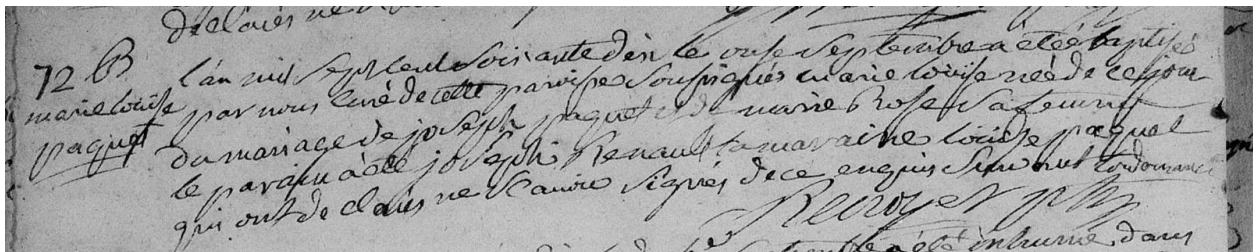 déclarés ne
72 B
marie louise
paquet
l'an mil sept cent soixante dix le onse septembre a été baptisé
par nous curé de cette paroisse soussignés marie loüise née de ce jour
du mariage de joseph paquet et de marie Rose sa femme
le parain à été joseph Renault la maraine loüise paquet
qui ont déclarés ne sçavoir signés de ce enquis suivant l'ordonnance
a été inhumé dans